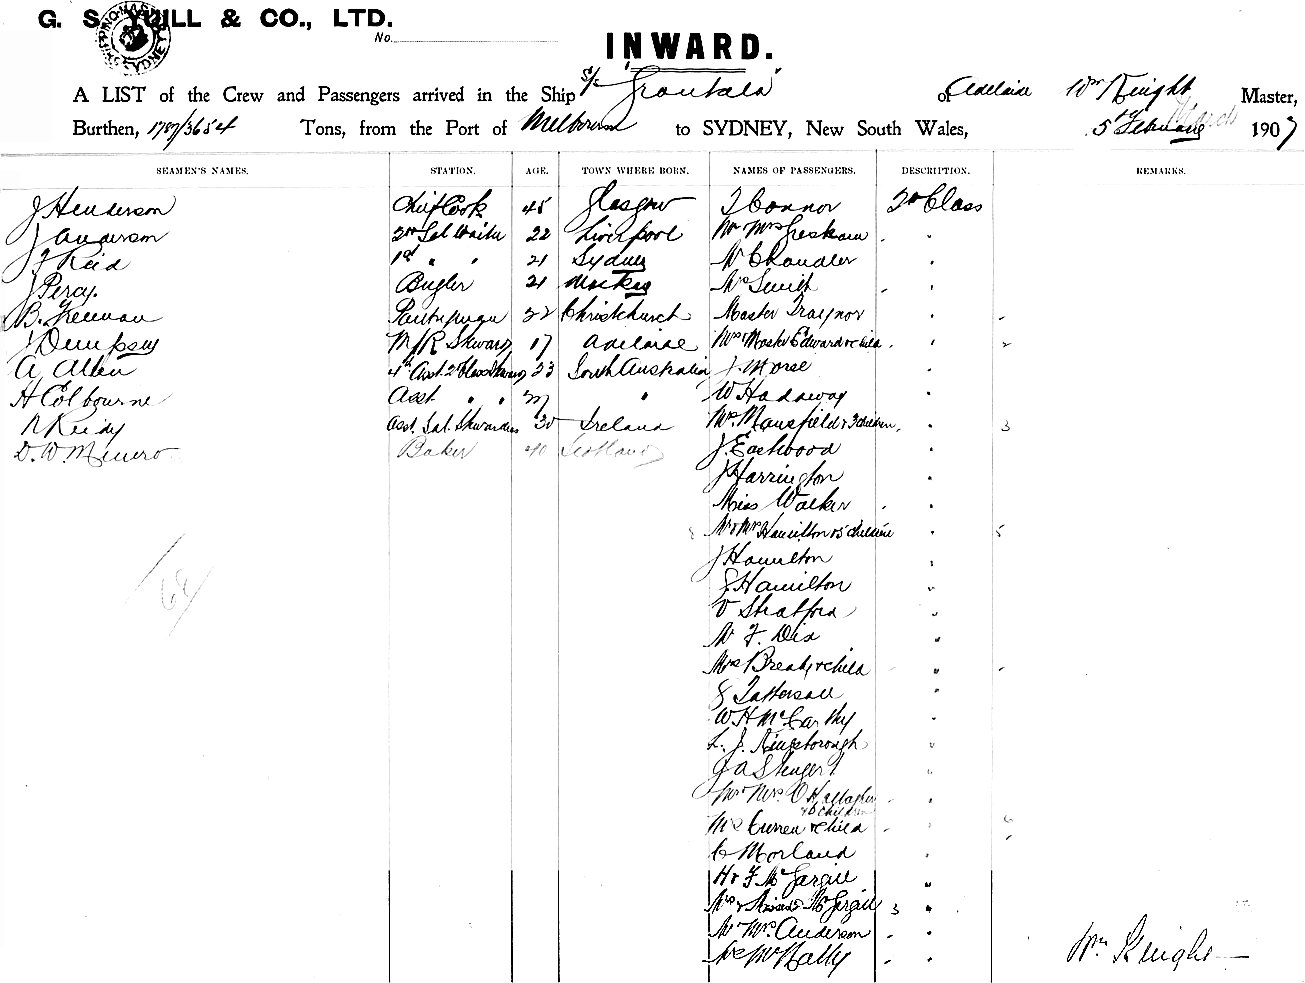 G. S. YUILL & CO., LTD.
No.
INWARD.
A LIST of the Crew and Passengers arrived in the Ship S/s "Grantala" of Adelaide Wm Knight Master,
Burthen, 1787/3654 Tons, from the Port of Melbourne to SYDNEY, New South Wales, 5 February March 1907
SEAMEN'S NAMES. STATION. AGE. TOWN WHERE BORN. NAMES OF PASSENGERS. DESCRIPTION. REMARKS.
J Henderson Chief Cook 45 Glasgow J Connor 2nd Class
J Anderson 2nd Sal Waiter 22 Liverpool Mr Mrs Gresham "
J Reid 1st " " 21 Sydney Mr Chandler "
J Percy. Bugler 21 Mackay Mrs Smith "
B. Keenan Pantryman 22 Christchurch Master Traynor "
J Dempsey M/R Steward 17 Adelaide Mrs & Master Edward & child "
A. Allen 4th Asst 2 Class Steward 23 South Australia J. Morse "
H Colbourne Asst " " " W Hadaway "
R Reidy Asst. Sal. Stewardess 30 Ireland Mrs. Mansfield & 3 children "  3
D. W. Munro Baker 40 Scotland J. Eastwood "
J Harrington "
Miss Walker "
Mr & Mrs Hamilton & 5 children " 5
J Hamilton "
J Hamilton "
V Stratford "
W. F. Dix "
Mrs Bready & child "
J Patterson "
W H McCarthy "
L. J. Kingsborough "
J A Stewart "
Mr Mrs O'Hallaghan "
& 6 children 6
Mrs Curren & child
C Morland "
H & F McGargill "
Mrs & Misses McGargill 3 "
Mr Mrs. Anderson "
McNally "
64
Wm Knight